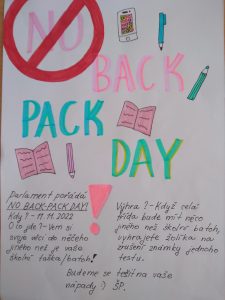 NO
BACK
PACK
DAY
Parlament pořádá:
NO BACK-PACK DAY!
Kdy? - 11. 11. 2022
O co jde? - Vem si
svoje věci do něčeho
jiného než je vaše
školní taška/batoh!
Výhra? - Když celá
třída bude mít něco
jiného než školní batoh,
vyhrajete žolíka na
zrušení známky jednoho
testu.
Budeme se těšit na vaše
nápady :) ŠP.